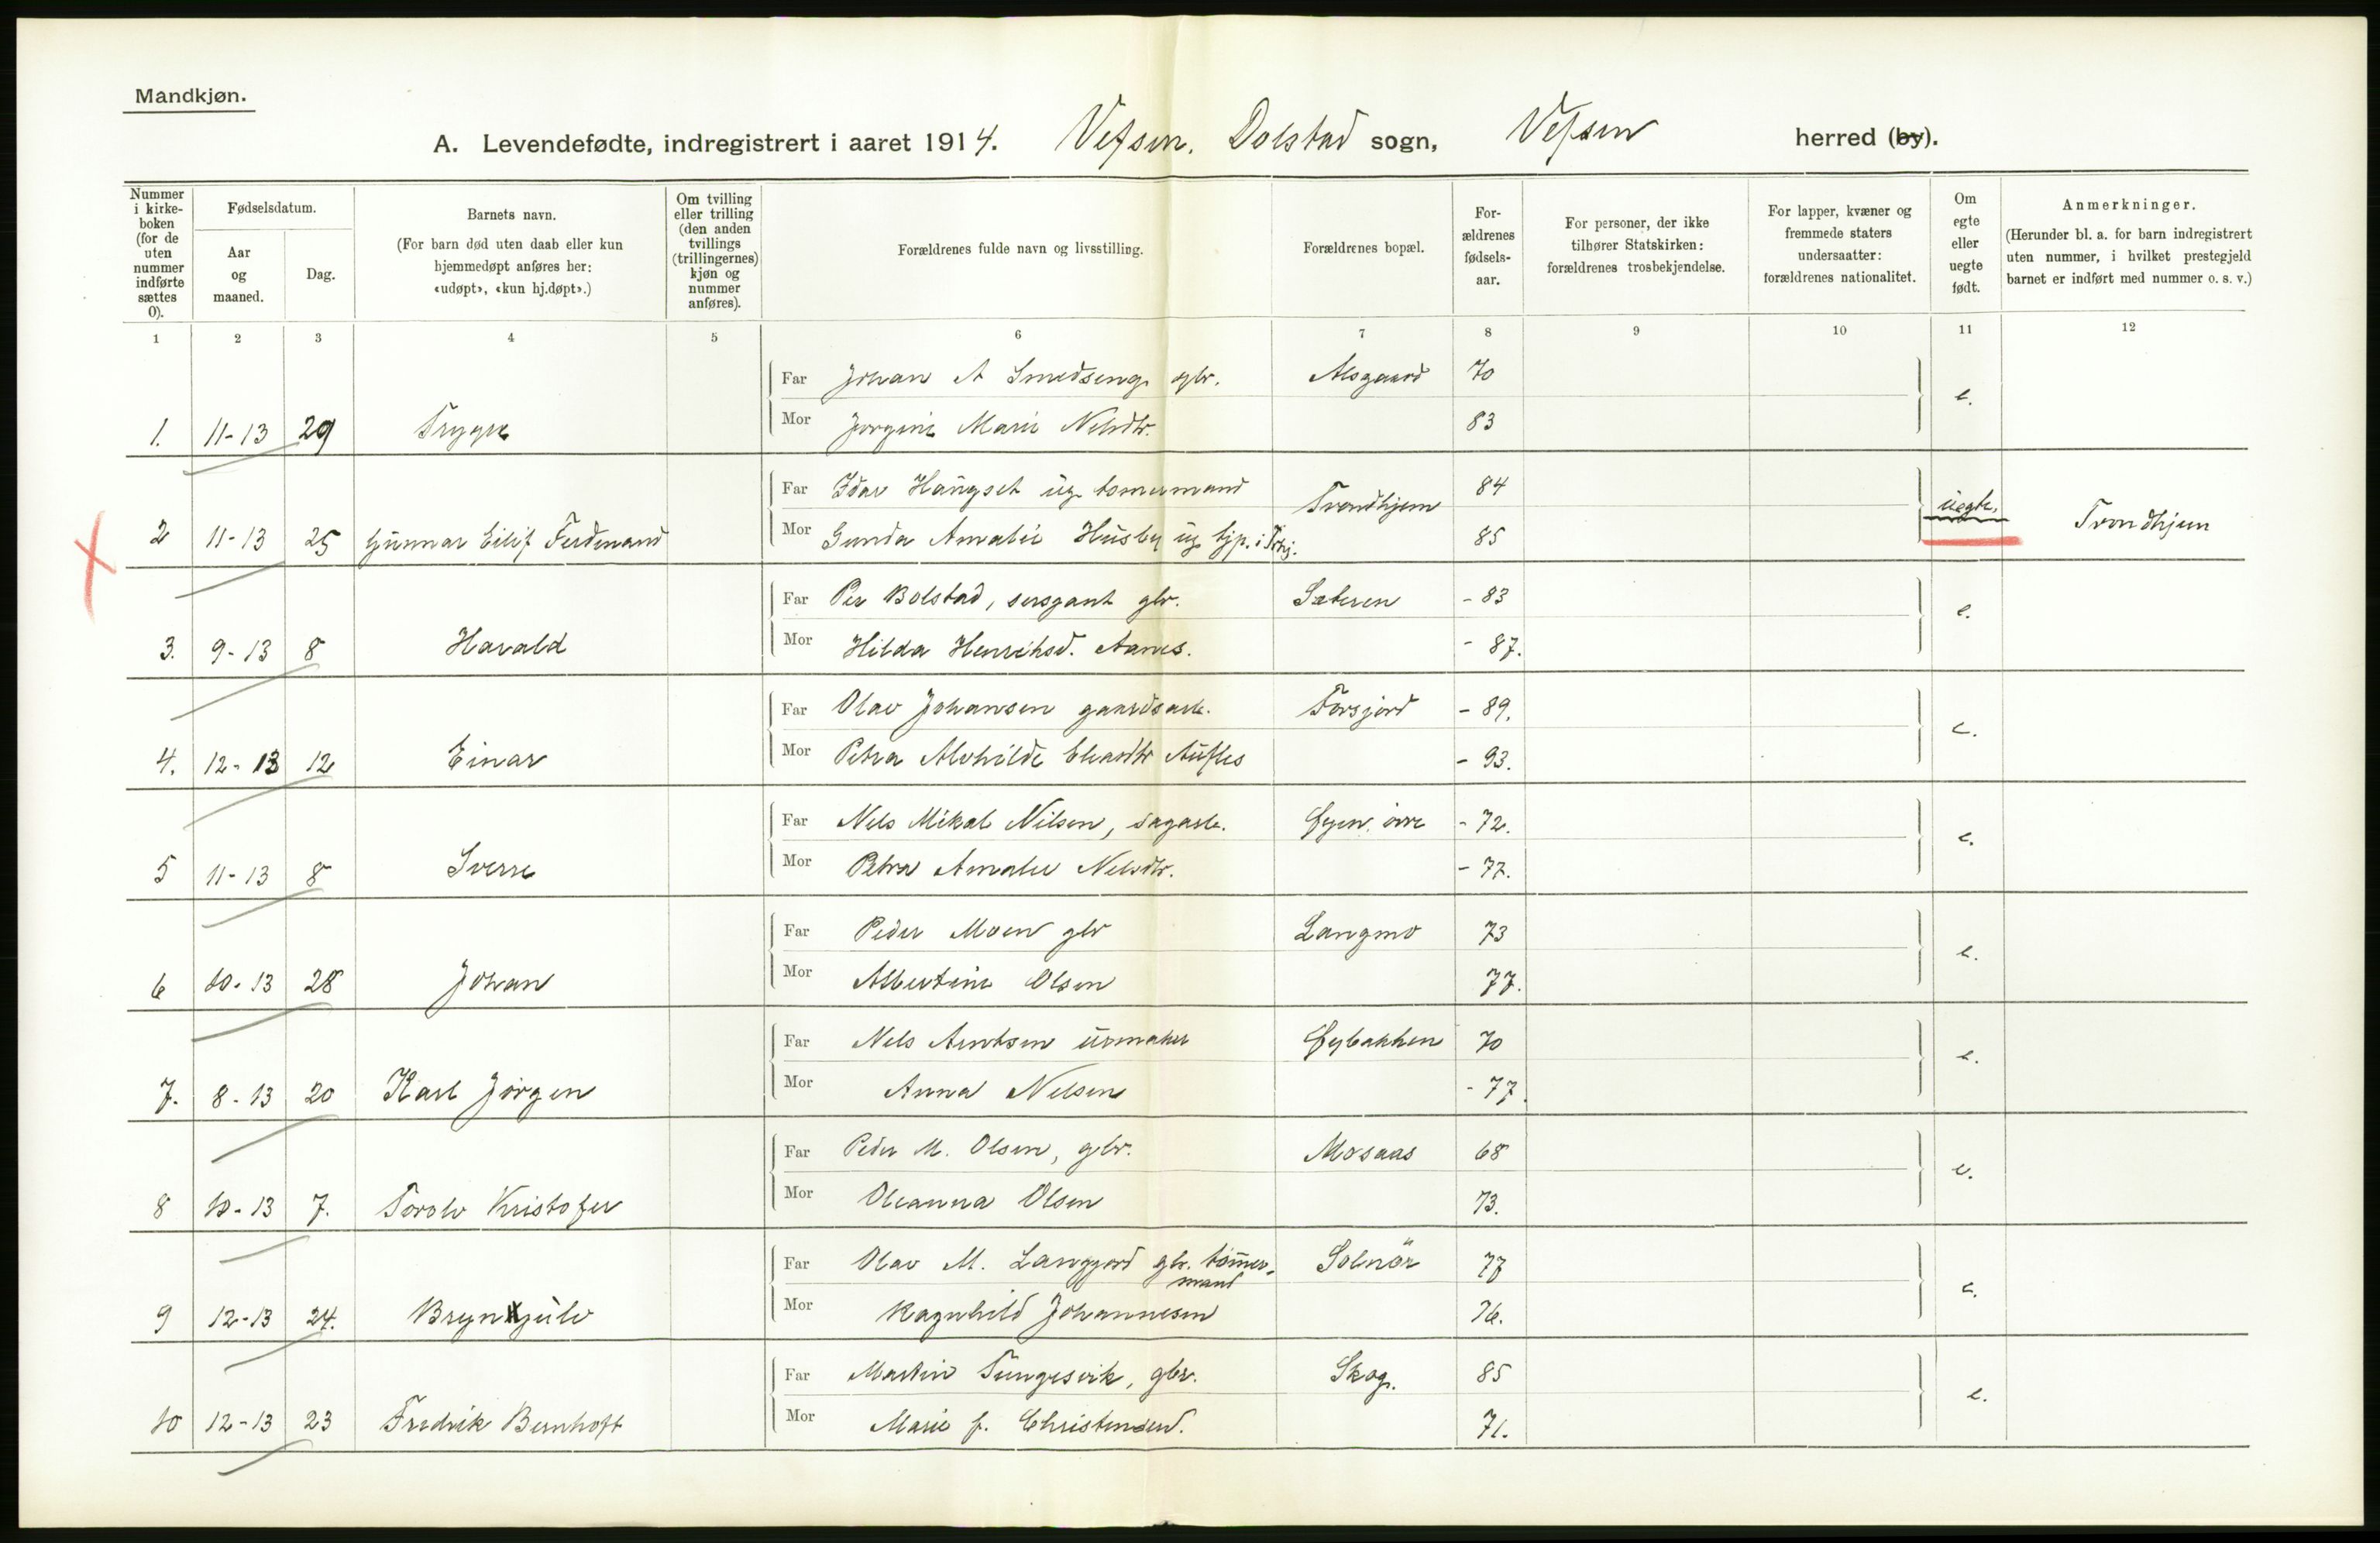 Mandkjøn.
A. Levendefødte, indregistrert i aaret 1914. Vefsen, Dolstad sogn, Vefsen herred (by).
Nummer i kirke-boken (for de uten nummer indførte sættes 0).
Fødselsdatum.
Aar og maaned.
Dag.
Barnets navn.
(For barn død uten daab eller kun hjemmedøpt anføres her: «udøpt», «kun hj.døpt».)
Om tvilling eller trilling (den anden tvillings (trillingernes) kjøn og nummer anføres).
Forældrenes fulde navn og livsstilling.
Forældrenes bopæl.
For-ældrenes fødsels-aar.
For personer, der ikke tilhører Statskirken: forældrenes trosbekjendelse.
For lapper, kvæner og fremmede staters undersaatter: forældrenes nationalitet.
Om egte eller uegte født.
Anmerkninger.
(Herunder bl. a. for barn indregistrert uten nummer, i hvilket prestegjeld barnet er indført med nummer o. s. v.)
1 2 3 4 5 6 7 8 9 10 11 12
Far Johan A Smedseng gbr. Alsgaard 70
1. 11-13 29 Trygve Mor Jorgine Marie Nilsdtr. 83 e.
Far Idar Haugset ug. tømmermand Trondhjem 84
2 11-13 25 Gunnar Eilif Ferdinand Mor Gunda Amalie Husby ug. tjp. i Trhj. 85 uegte. Trondhjem
Far Per Bolstad, sersjant gbr. Sæteren - 83
3. 9-13 8 Harald Mor Hilda Henriksd. Aanes. - 87. e.
Far Olav Johansen gaardsarb. Forsjord - 89.
4. 12-13 12 Einar Mor Petra Alvhilde - 93. e.
Far Nils Mikal Nilsen, sagarb. Øyen, øvre - 72.
5 11-13 8 Sverre Mor Petra Amalie Nilsdtr. - 77. e.
Far Peder Moen gbr Langmo 73
6 10-13 28 Johan Mor Albertine Olsen 77. e.
Far Nils Arntsen urmaker Øybakken 70
7. 8-13 20 Karl Jørgen Mor Anna Nilsen - 77. e.
Far Peder M. Olsen, gbr. Mosaas 68
8 10-13 7. Torolv Kristofer Mor Oleanna Olsen 73. e.
Far Olav M. Langjord gbr. tømmer-mand 77
9 12-13 24. Brynjulv Mor Ragnhild Johannesen 76. e.
Far Martin Tungesvik, gbr. Skog. 85
10 12-13 23 Fredrik Bernhoft Mor Marie f. Christensen. 71. e.